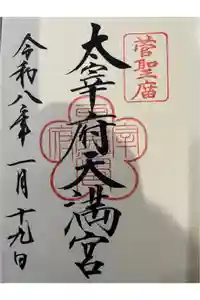 菅聖庿
太宰府天満宮
令和八年一月十九日